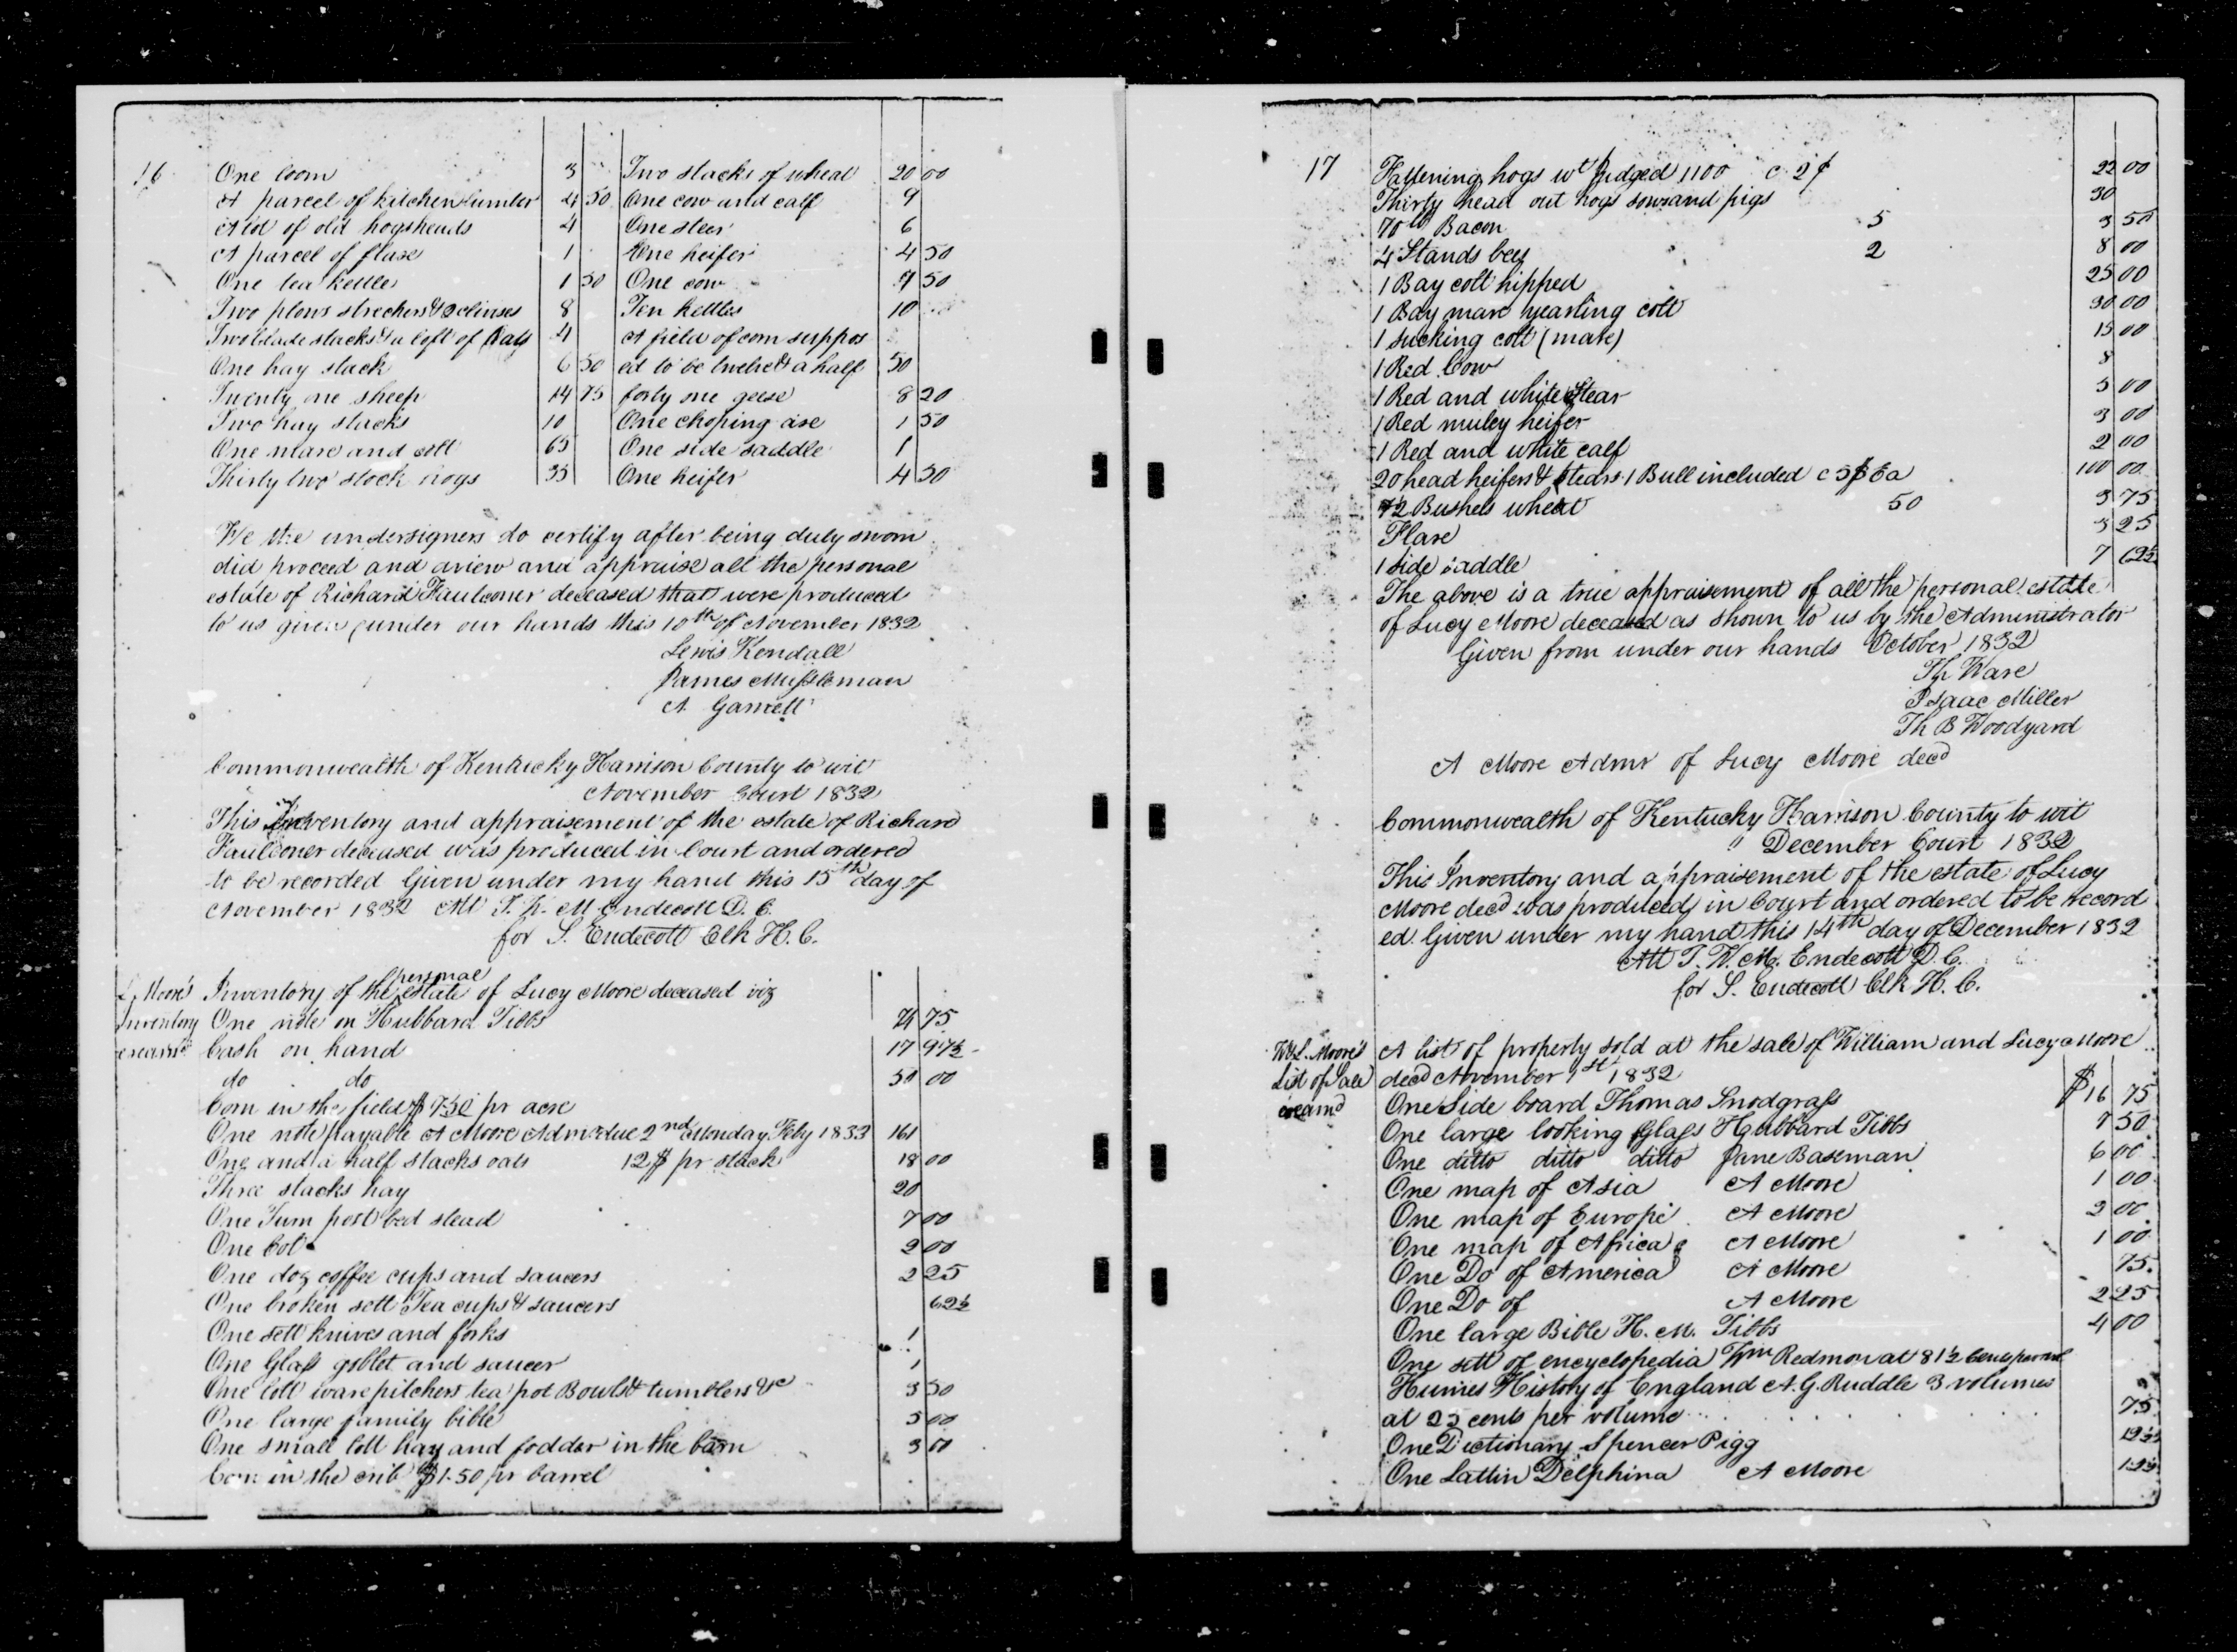 16
One loom 3 Two stacks of wheat 20 00
A parcel of kitchen lumber 4 50 One cow and calf 9
A lot of old hogsheads 4 One steer 6
A parcel of flax 1 One heifer 4 50
One tea kettle 1 50 One cow 7 50
Two plows strechers & clivises 8 Ten kettles 10
Two blade stacks & a loft of hay 4 A field of corn suppos
One hay stack 6 50 ed to be twelve & a half 50
Twenty one sheep 14 75 forty one geese 8 20
Two hay stacks 10 One choping axe 1 50
One mare and colt 65 One side saddle 1
Thirty two stock hogs 35 One heifer 4 50
We the undersigners do certify after being duly sworn
did proceed and aview and appraise all the personal
estate of Richard Faulconer deceased that were produced
to us given under our hands this 10th of November 1832
Lewis Kendall
James Mussleman
A Garnett
Commonwealth of Kentucky Harrison County to wit
November Court 1832
This Inventory and appraisement of the estate of Richard
Faulconer deceased was produced in Court and ordered
to be recorded Given under my hand this 15th day of
November 1832 Att T. W. M Endecott D. C.
for S. Endecott Clk H. C.
L Moore's Inventory of the personal estate of Lucy Moore deceased viz
Inventory One note on Hubbard Tibbs 75
Cash on hand 17 97½
do do 50 00
Corn in the field $ 7.50 pr acre
One note payable A Moore Admr due 2nd Monday Feby 1833 161
One and a half stacks oats 12$ pr stack 18 00
Three stacks hay 20
One Turn post bed stead 7 00
One Cot 2 00
One doz coffee cups and saucers 2 25
One broken sett Tea cups & saucers 62½
One sett knives and forks 1
One Glass goblet and saucer 1
One lott ware pitchers tea pot Bowls & tumblers &c 3 50
One large family bible 5 00
One small lott hay and fodder in the barn 3 00
Corn in the crib $1.50 pr barrel
17
Fattening hogs wt judged 1100 c 2¢ 22 00
Thirty head out hogs sows and pigs 30
70 lb Bacon 5 3 50
4 Stands bees 2 8 00
1 Bay colt hipped 25 00
1 Bay mare yearling colt 30 00
1 sucking colt (mare) 15 00
1 Red Cow 8
1 Red and white Stear 5 00
1 Red muley heifer 3 00
1 Red and white calf 2 00
20 head heifers & stears 1 Bull included c 5$ Ea 100 00
7½ Bushels wheat 50 3 75
Flax 3 25
1 side saddle 7 62½
The above is a true appraisement of all the personal estate
of Lucy Moore deceased as shown to us by the Administrator
Given from under our hands October 1832
Th Ware
Isaac Miller
Th B Woodyard
A Moore Admr of Lucy Moore decd
Commonwealth of Kentucky Harrison County to wit
December Court 1832
This Inventory and appraisement of the estate of Lucy
Moore decd was produced in Court and ordered to be record
ed. Given under my hand this 14th day of December 1832
Att T. W. M. Endecott D. C.
for S. Endecott Clk H. C.
W & L. Moore's A list of property sold at the sale of William and Lucy Moore
List of Sale decd November 1st 1832
examd One Side board Thomas Snodgrass $16 75
One large looking Glass Hubbard Tibbs 7 50
One ditto ditto ditto Jane Baseman 6 00
One map of Asia A Moore 1 00
One map of Europe A Moore 2 00
One map of Africa A Moore 1 00
One Do of America A Moore 75
One Do of A Moore 2 25
One large Bible H. M. Tibbs 4 00
One sett of encyclopedia Wm Redmon at 81½ Cents per vol
Humes History of England A. G. Ruddle 3 volumes
at 25 cents per volume 75
One Dictionary Spencer Pigg
One Lattin Delphina A Moore